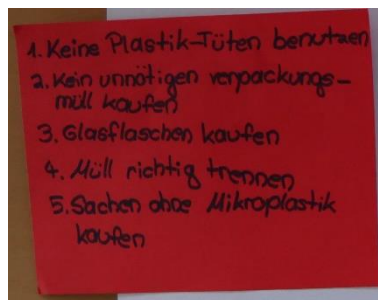 1. Keine Plastik-Tüten benutzen
2. Kein unnötigen verpackungs-
müll kaufen
3. Glasflaschen kaufen
4. Müll richtig trennen
5. Sachen ohne Mikroplastik
kaufen